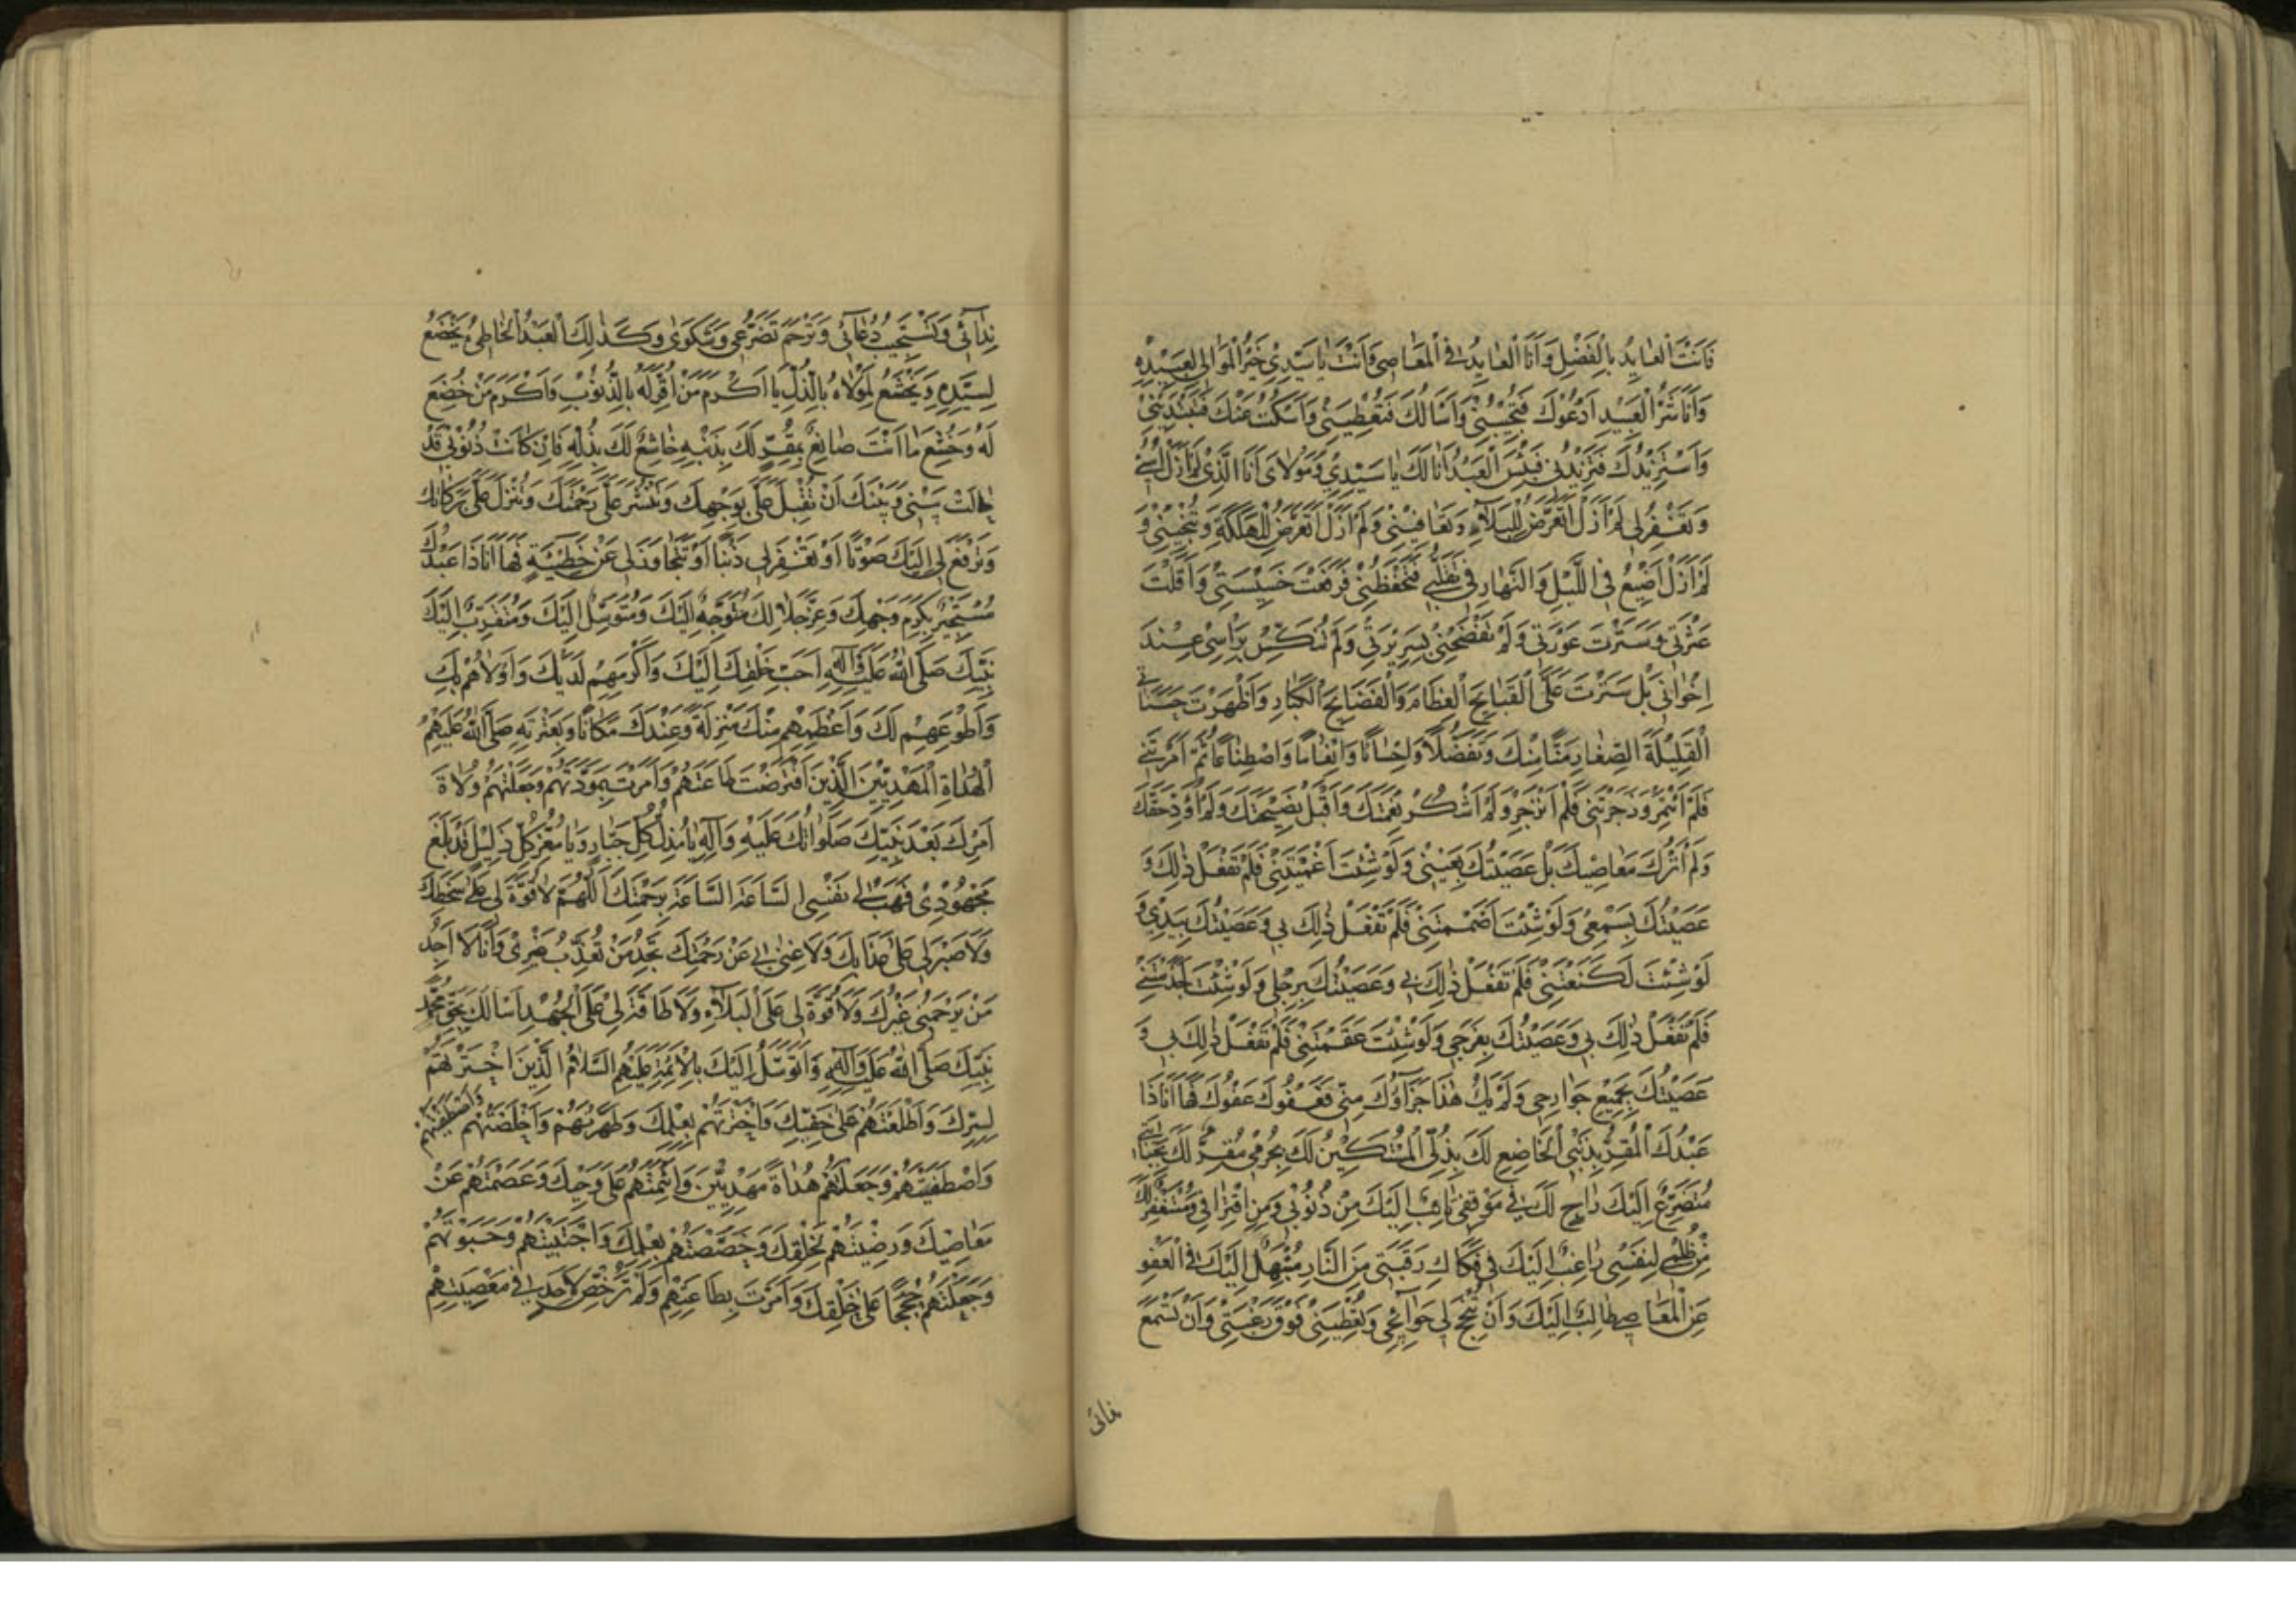 فَاَنْتَ الْعٰایِدُ بِالْفَضْلِ وَاَنَا الْعٰایِدُ فِی الْمَعٰاصِی وَاَنْتَ یٰا سَیِّدِی خَیْرُ الْمَوٰالِی لِعَبِیْدِهِ
وَاَنَا شَرُّ الْعَبِیْدِ اَدْعُوْكَ فَتُجِیْبُنِیْ وَاَسْاَلُكَ فَتُعْطِیْنِیْ وَاَسْكُتُ عَنْكَ فَتَبْتَدِئُنِیْ
وَاَسْتَزِیْدُكَ فَتَزِیْدُنِی فَبِئْسَ الْعَبْدُ اَنَا لَكَ یٰا سَیِّدِیْ وَمَوْلٰایَ اَنَا الَّذِیْ لَمْ اَزَلْ اُسِیْئُ
وَتَغْفِرُ لِی لَمْ اَزَلْ اَتَعَرَّضُ لِلْبَلٰآءِ وَتُعٰافِیْنِیْ وَلَمْ اَزَلْ اَتَعَرَّضُ لِلْهَلَكَةِ وَتُنْجِیْنِیْ وَ
لَمْ اَزَلْ اَضِیْعُ فِی اللَّیْلِ وَالنَّهٰارِ فِی تَقَلُّبِیْ فَتَحْفَظُنِیْ فَرَفَعْتَ خَسِیْسَتِیْ وَاَقَلْتَ
عَثْرَتِی وَسَتَرْتَ عَوْرَتِی وَلَمْ تَفْضَحْنِیْ بِسَرِیْرَتِیْ وَلَمْ تُنَكِّسْ بِرَاْسِیْ عِنْدَ
اِخْوٰانِیْ بَلْ سَتَرْتَ عَلَیَّ الْقَبٰایِحَ الْعِظَامَ وَالْفَضٰایِحَ الْكِبٰارَ وَاَظْهَرْتَ حَسَنٰاتِی
الْقَلِیْلَةَ الصِّغٰارَ مَنًّا مِنْكَ وَتَفَضُّلًا وَاِحْسٰانًا وَاِنْعٰامًا وَاصْطِنٰاعًا ثُمَّ اَمَرْتَنِیْ
فَلَمْ اَئْتَمِرْ وَزَجَرْتَنِیْ فَلَمْ اَنْزَجِرْ وَلَمْ اَشْكُرْ نِعْمَتَكَ وَلَمْ اَقْبَلْ نَصِیْحَتَكَ وَلَمْ اُؤَدِّ حَقَّكَ
وَلَمْ اَتْرُكْ مَعٰاصِیْكَ بَلْ عَصَیْتُكَ بِعَیْنِیْ وَلَوْ شِئْتَ اَعْمَیْتَنِیْ فَلَمْ تَفْعَلْ ذٰلِكَ وَ
عَصَیْتُكَ بِسَمْعِیْ وَلَوْ شِئْتَ اَصْمَمْتَنِیْ فَلَمْ تَفْعَلْ ذٰلِكَ بِی وَعَصَیْتُكَ بِیَدِیْ وَ
لَوْ شِئْتَ لَكَنَعْتَنِیْ فَلَمْ تَفْعَلْ ذٰلِكَ بِیْ وَعَصَیْتُكَ بِرِجْلِی وَلَوْ شِئْتَ جَذَمْتَنِیْ
فَلَمْ تَفْعَلْ ذٰلِكَ بِی وَعَصَیْتُكَ بِفَرْجِی وَلَوْ شِئْتَ عَقَمْتَنِیْ فَلَمْ تَفْعَلْ ذٰلِكَ بِی وَ
عَصَیْتُكَ بِجَمِیْعِ جَوٰارِحِی وَلَمْ یَكُ هٰذَا جَزَآؤُكَ مِنِّی فَعَفْوُكَ عَفْوُكَ فَهٰا اَنَا ذَا
عَبْدُكَ الْمُقِرُّ بِذَنْبِی الْخَاضِعُ لَكَ بِذُلِّی الْمُسْتَكِیْنُ لَكَ بِجُرْمِی مُقِرٌّ لَكَ بِجِنٰایَتِی
مُتَضَرِّعٌ اِلَیْكَ رٰاجٍ لَكَ فِیْ مَوْقِفِی تٰائِبٌ اِلَیْكَ مِنْ ذُنُوْبِیْ وَمِنِ اقْتِرٰافِی وَمُسْتَغْفِرٌ لَكَ
مِنْ ظُلْمِیْ لِنَفْسِی رٰاغِبٌ اِلَیْكَ فِی فَكٰاكِ رَقَبَتِی مِنَ النَّارِ مُبْتَهِلٌ اِلَیْكَ فِی الْعَفْوِ
عَنِ الْمَعٰاصِی طٰالِبٌ اِلَیْكَ وَاَنْ تُنْجِحَ لِی حَوٰآئِجِی وَتُعْطِیَنِیْ فَوْقَ رَغْبَتِیْ وَاَنْ تَسْمَعَ
نِدٰآئِی وَتَسْتَجِیْبَ دُعٰآئِی وَتَرْحَمَ تَضَرُّعِی وَشَكْوٰایَ وَكَذٰلِكَ الْعَبْدُ الْخٰاطِیُ یَخْضَعُ
لِسَیِّدِهِ وَیَخْشَعُ لِمَوْلٰاهُ بِالذُّلِّ یٰا اَكْرَمَ مَنْ اُقِرَّ لَهُ بِالذُّنُوْبِ وَاَكْرَمَ مَنْ خُضِعَ
لَهُ وَخُشِعَ مٰا اَنْتَ صٰانِعٌ بِمُقِرٍّ لَكَ بِذَنْبِهِ خٰاشِعٍ لَكَ بِذُلِّهِ فَاِنْ كٰانَتْ ذُنُوْبِیْ قَدْ
حٰالَتْ بَیْنِیْ وَبَیْنَكَ اَنْ تُقْبِلَ عَلَیَّ بِوَجْهِكَ وَتَنْشُرَ عَلَیَّ رَحْمَتَكَ وَتُنْزِلَ عَلَیَّ بَرَكٰاتِكَ
وَتَرْفَعَ لِی اِلَیْكَ صَوْتًا اَوْ تَغْفِرَ لِی ذَنْبًا اَوْ تَتَجٰاوَزَ لِی عَنْ خَطِیْئَةٍ فَهٰا اَنَا ذَا عَبْدُكَ
مُسْتَجِیْرٌ بِكَرَمِ وَجْهِكَ وَعِزِّ جَلٰالِكَ مُتَوَجِّهٌ اِلَیْكَ وَمُتَوَسِّلٌ اِلَیْكَ وَمُتَقَرِّبٌ اِلَیْكَ
بِنَبِیِّكَ صَلَّی اللهُ عَلَیْهِ وَآلِهِ اَحَبِّ خَلْقِكَ اِلَیْكَ وَاَكْرَمِهِمْ لَدَیْكَ وَاَوْلٰاهُمْ بِكَ
وَاَطْوَعِهِمْ لَكَ وَاَعْظَمِهِمْ مِنْكَ مَنْزِلَةً وَعِنْدَكَ مَكَانًا وَبِعِتْرَتِهِ صَلَّی اللهُ عَلَیْهِمُ
الْهُدٰاةِ الْمَهْدِیِّیْنَ الَّذِیْنَ افْتَرَضْتَ طٰاعَتَهُمْ وَاَمَرْتَ بِمَوَدَّتِهِمْ وَجَعَلْتَهُمْ وُلٰاةَ
اَمْرِكَ بَعْدَ نَبِیِّكَ صَلَوٰاتُكَ عَلَیْهِ وَآلِهِ یٰا مُذِلَّ كُلِّ جَبّٰارٍ وَیٰا مُعِزَّ كُلِّ ذَلِیْلٍ قَدْ بَلَغَ
مَجْهُوْدِیْ فَهَبْ لِی نَفْسِی السَّاعَةَ السَّاعَةَ بِرَحْمَتِكَ اَللّٰهُمَّ لٰا قُوَّةَ لِی عَلٰی سَخَطِكَ
وَلٰا صَبْرَ لِی عَلٰی عَذٰابِكَ وَلٰا غِنٰی بِی عَنْ رَحْمَتِكَ تَجِدُ مَنْ تُعَذِّبُ غَیْرِیْ وَاَنَا لٰا اَجِدُ
مَنْ یَرْحَمُنِیْ غَیْرَكَ وَلٰا قُوَّةَ لِی عَلَی الْبَلٰآءِ وَلٰا طٰاقَةَ لِیْ عَلَی الْجُهْدِ اَسْاَلُكَ بِحَقِّ مُحَمَّدٍ
نَبِیِّكَ صَلَّی اللهُ عَلَیْهِ وَآلِهِ وَاَتَوَسَّلُ اِلَیْكَ بِالْاَئِمَّةِ عَلَیْهِمُ السَّلٰامُ الَّذِیْنَ اخْتَرْتَهُمْ
لِسِرِّكَ وَاَطْلَعْتَهُمْ عَلٰی خَفِیِّكَ وَاخْتَرْتَهُمْ بِعِلْمِكَ وَطَهَّرْتَهُمْ وَاَخْلَصْتَهُمْ وَاصْطَفَیْتَهُمْ
وَاصْطَفَیْتَهُمْ وَجَعَلْتَهُمْ هُدٰاةً مَهْدِیِّیْنَ وَائْتَمَنْتَهُمْ عَلٰی وَحْیِكَ وَعَصَمْتَهُمْ عَنْ
مَعٰاصِیْكَ وَرَضِیْتَهُمْ لِخَلْقِكَ وَخَصَصْتَهُمْ بِعِلْمِكَ وَاجْتَبَیْتَهُمْ وَحَبَوْتَهُمْ
وَجَعَلْتَهُمْ حُجَجًا عَلٰی خَلْقِكَ وَاَمَرْتَ بِطٰاعَتِهِمْ وَلَمْ تُرَخِّصْ لِاَحَدٍ فِی مَعْصِیَتِهِمْ